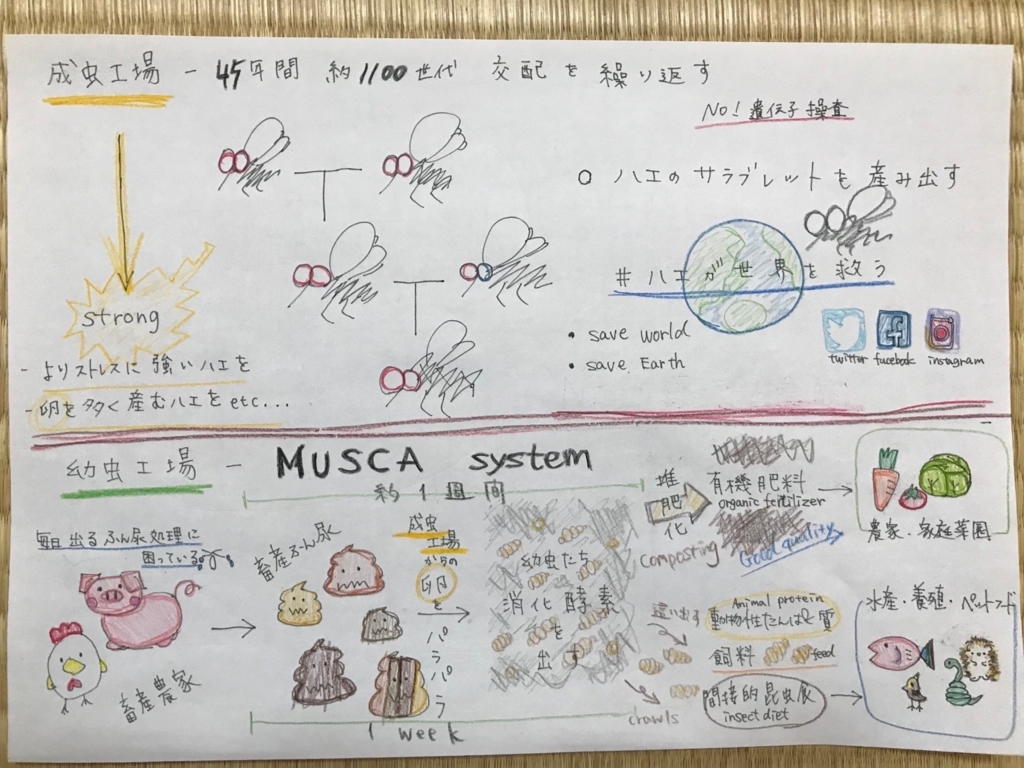 成虫工場 - 45年間 約1100世代 交配を繰り返す
NO! 遺伝子操査
○ ハエのサラブレットを産み出す
#ハエが世界を救う
strong
・save world
・save Earth
twitter facebook instagram
- よりストレスに強いハエを
- 卵を多く産むハエをetc...
幼虫工場 - MUSCA system
約1週間
毎日出るふん尿処理に
困っている
畜産農家
畜産ふん尿
成虫
工場
からの
卵を
パラパラ
幼虫たち
消化酵素
を
出す
1 week
堆肥化
composting
有機肥料
organic fertilizer
Good quality
農家・家庭菜園
這い出す
crawls
Animal protein
動物性たんぱく質
飼料 feed
間接的昆虫食
insect diet
水産・養殖・ペットフード